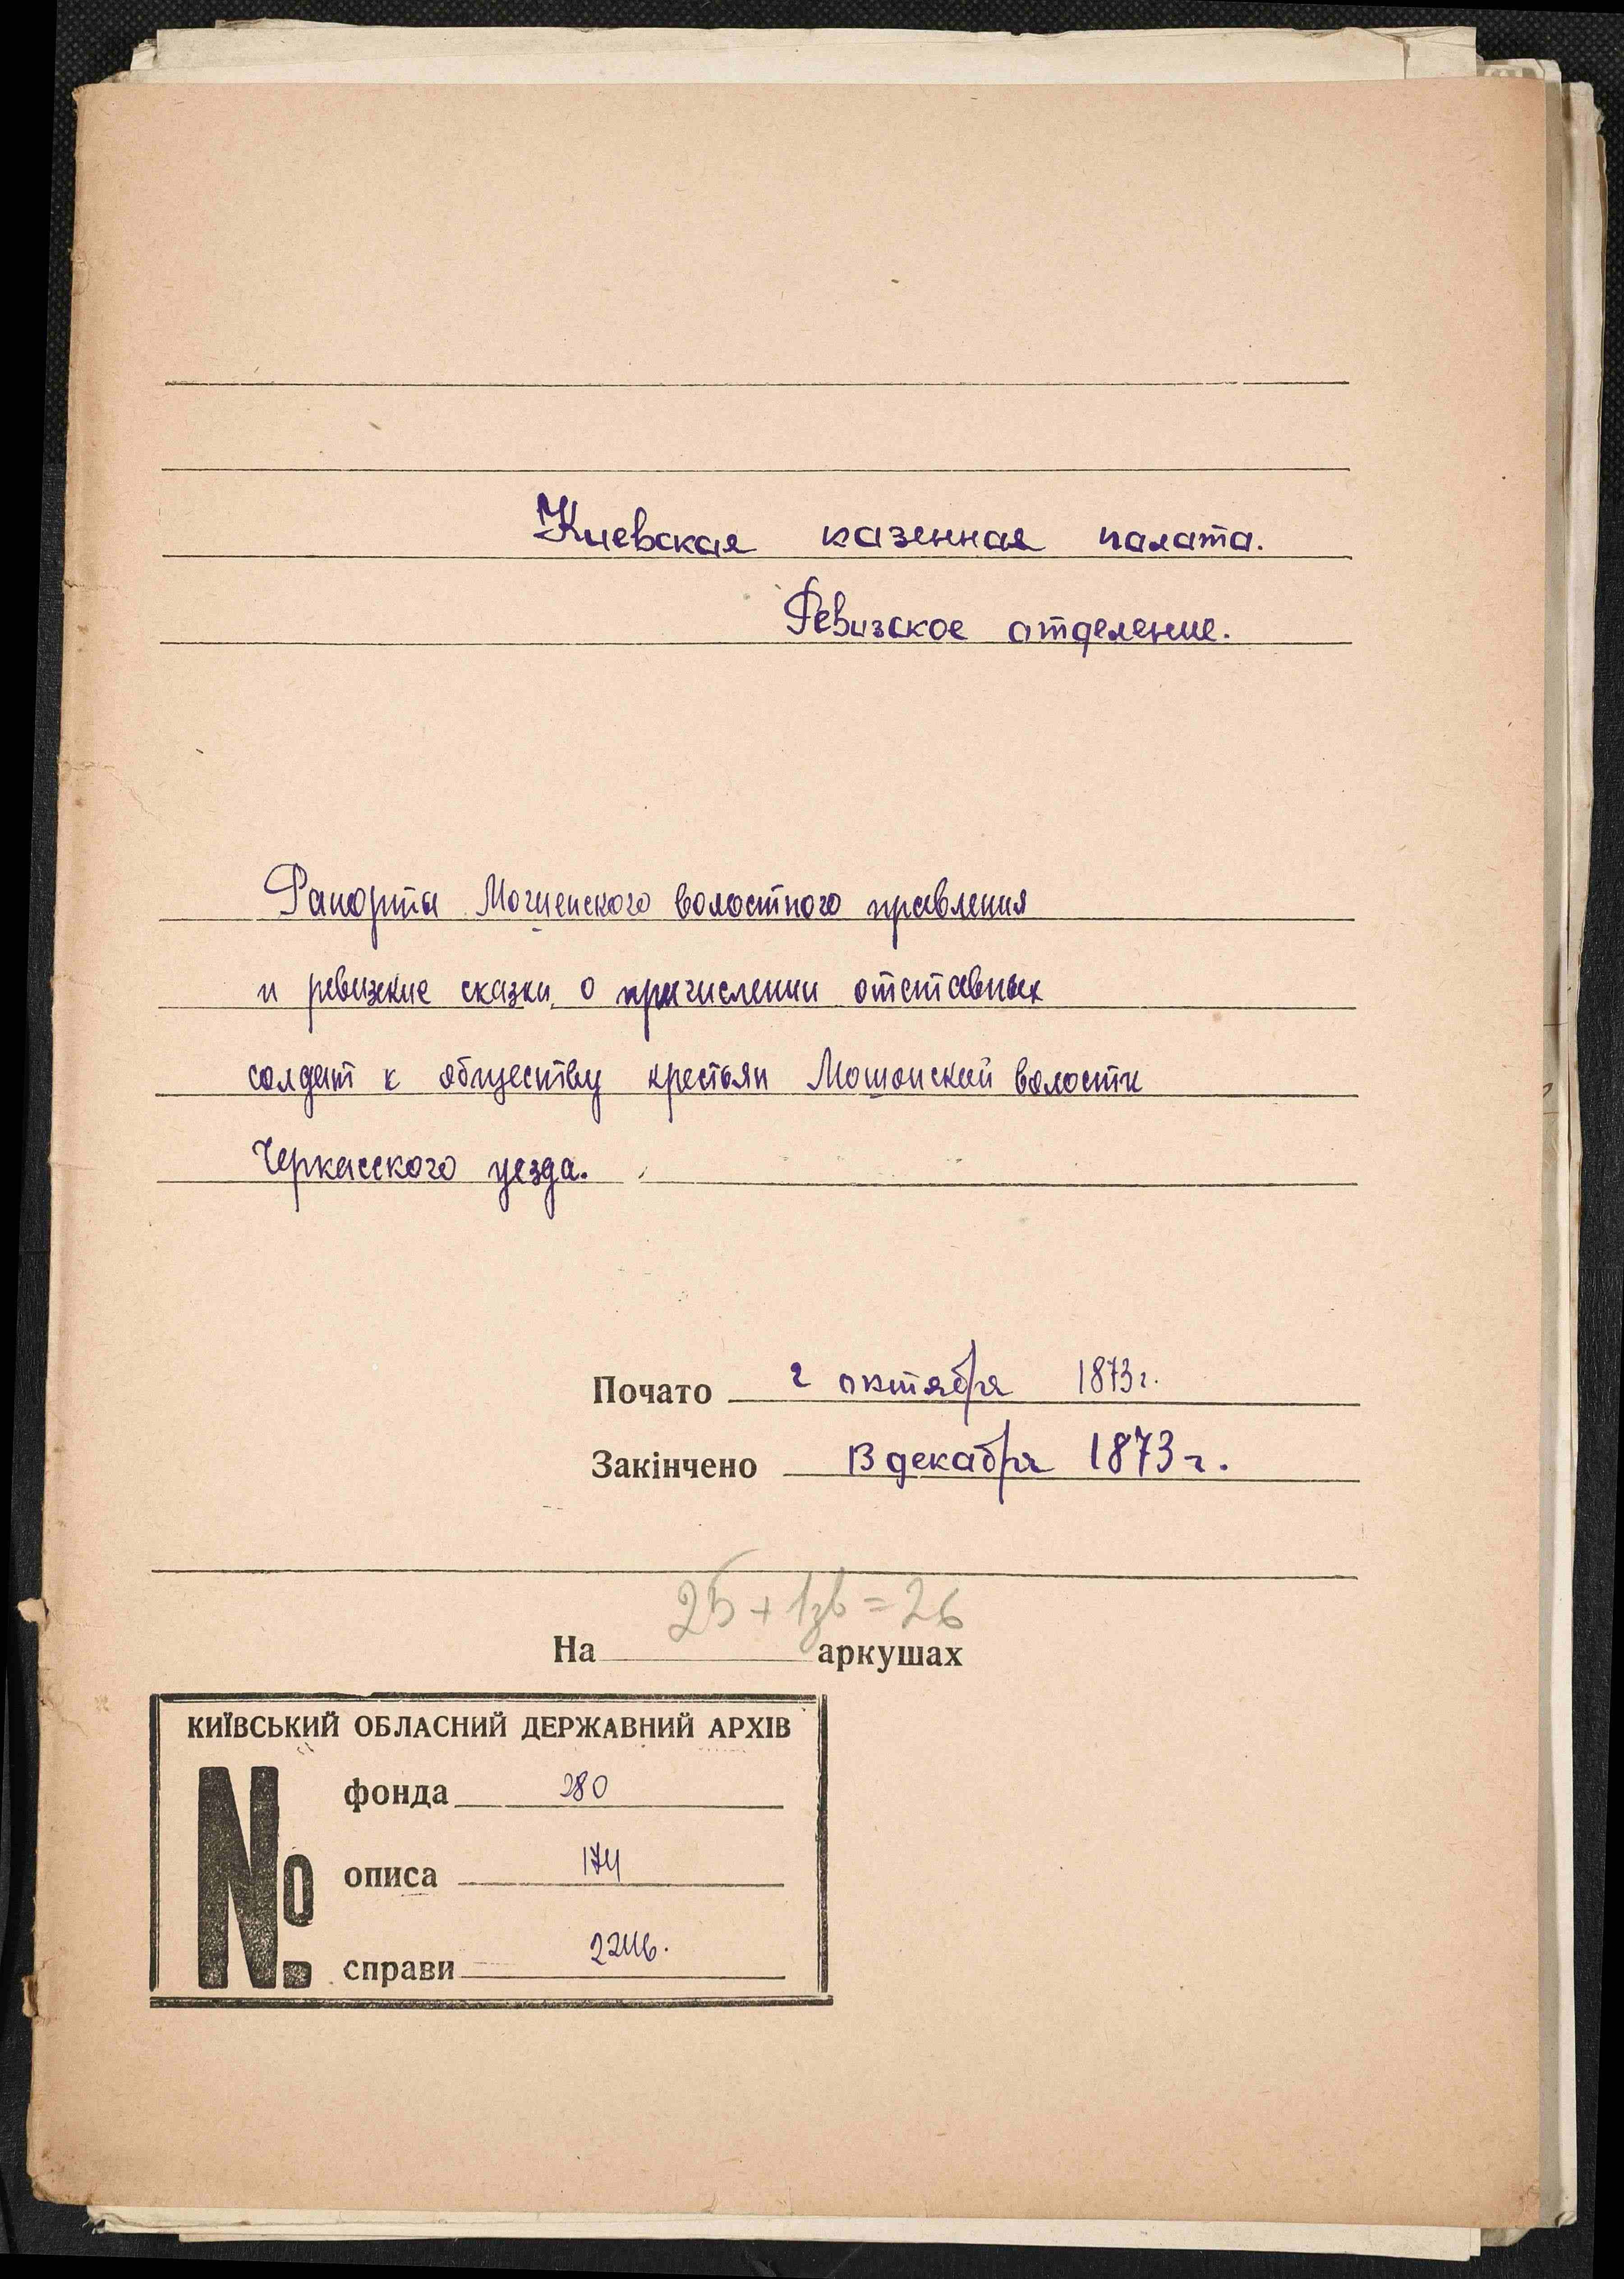 Киевская казенная палата.
Ревизское отделение.
Рапорты волостного правления
и ревизкие сказки о причислении отставных
солдат к обществу крестьян Мошонской волости
Черкасского уезда.
Почато 2 октября 1873 г.
Закінчено 13 декабря 1873 г.
25 + 1зв = 26
На аркушах
КИЇВСЬКИЙ ОБЛАСНИЙ ДЕРЖАВНИЙ АРХІВ
№ фонда 280
описа 174
справи 2246.